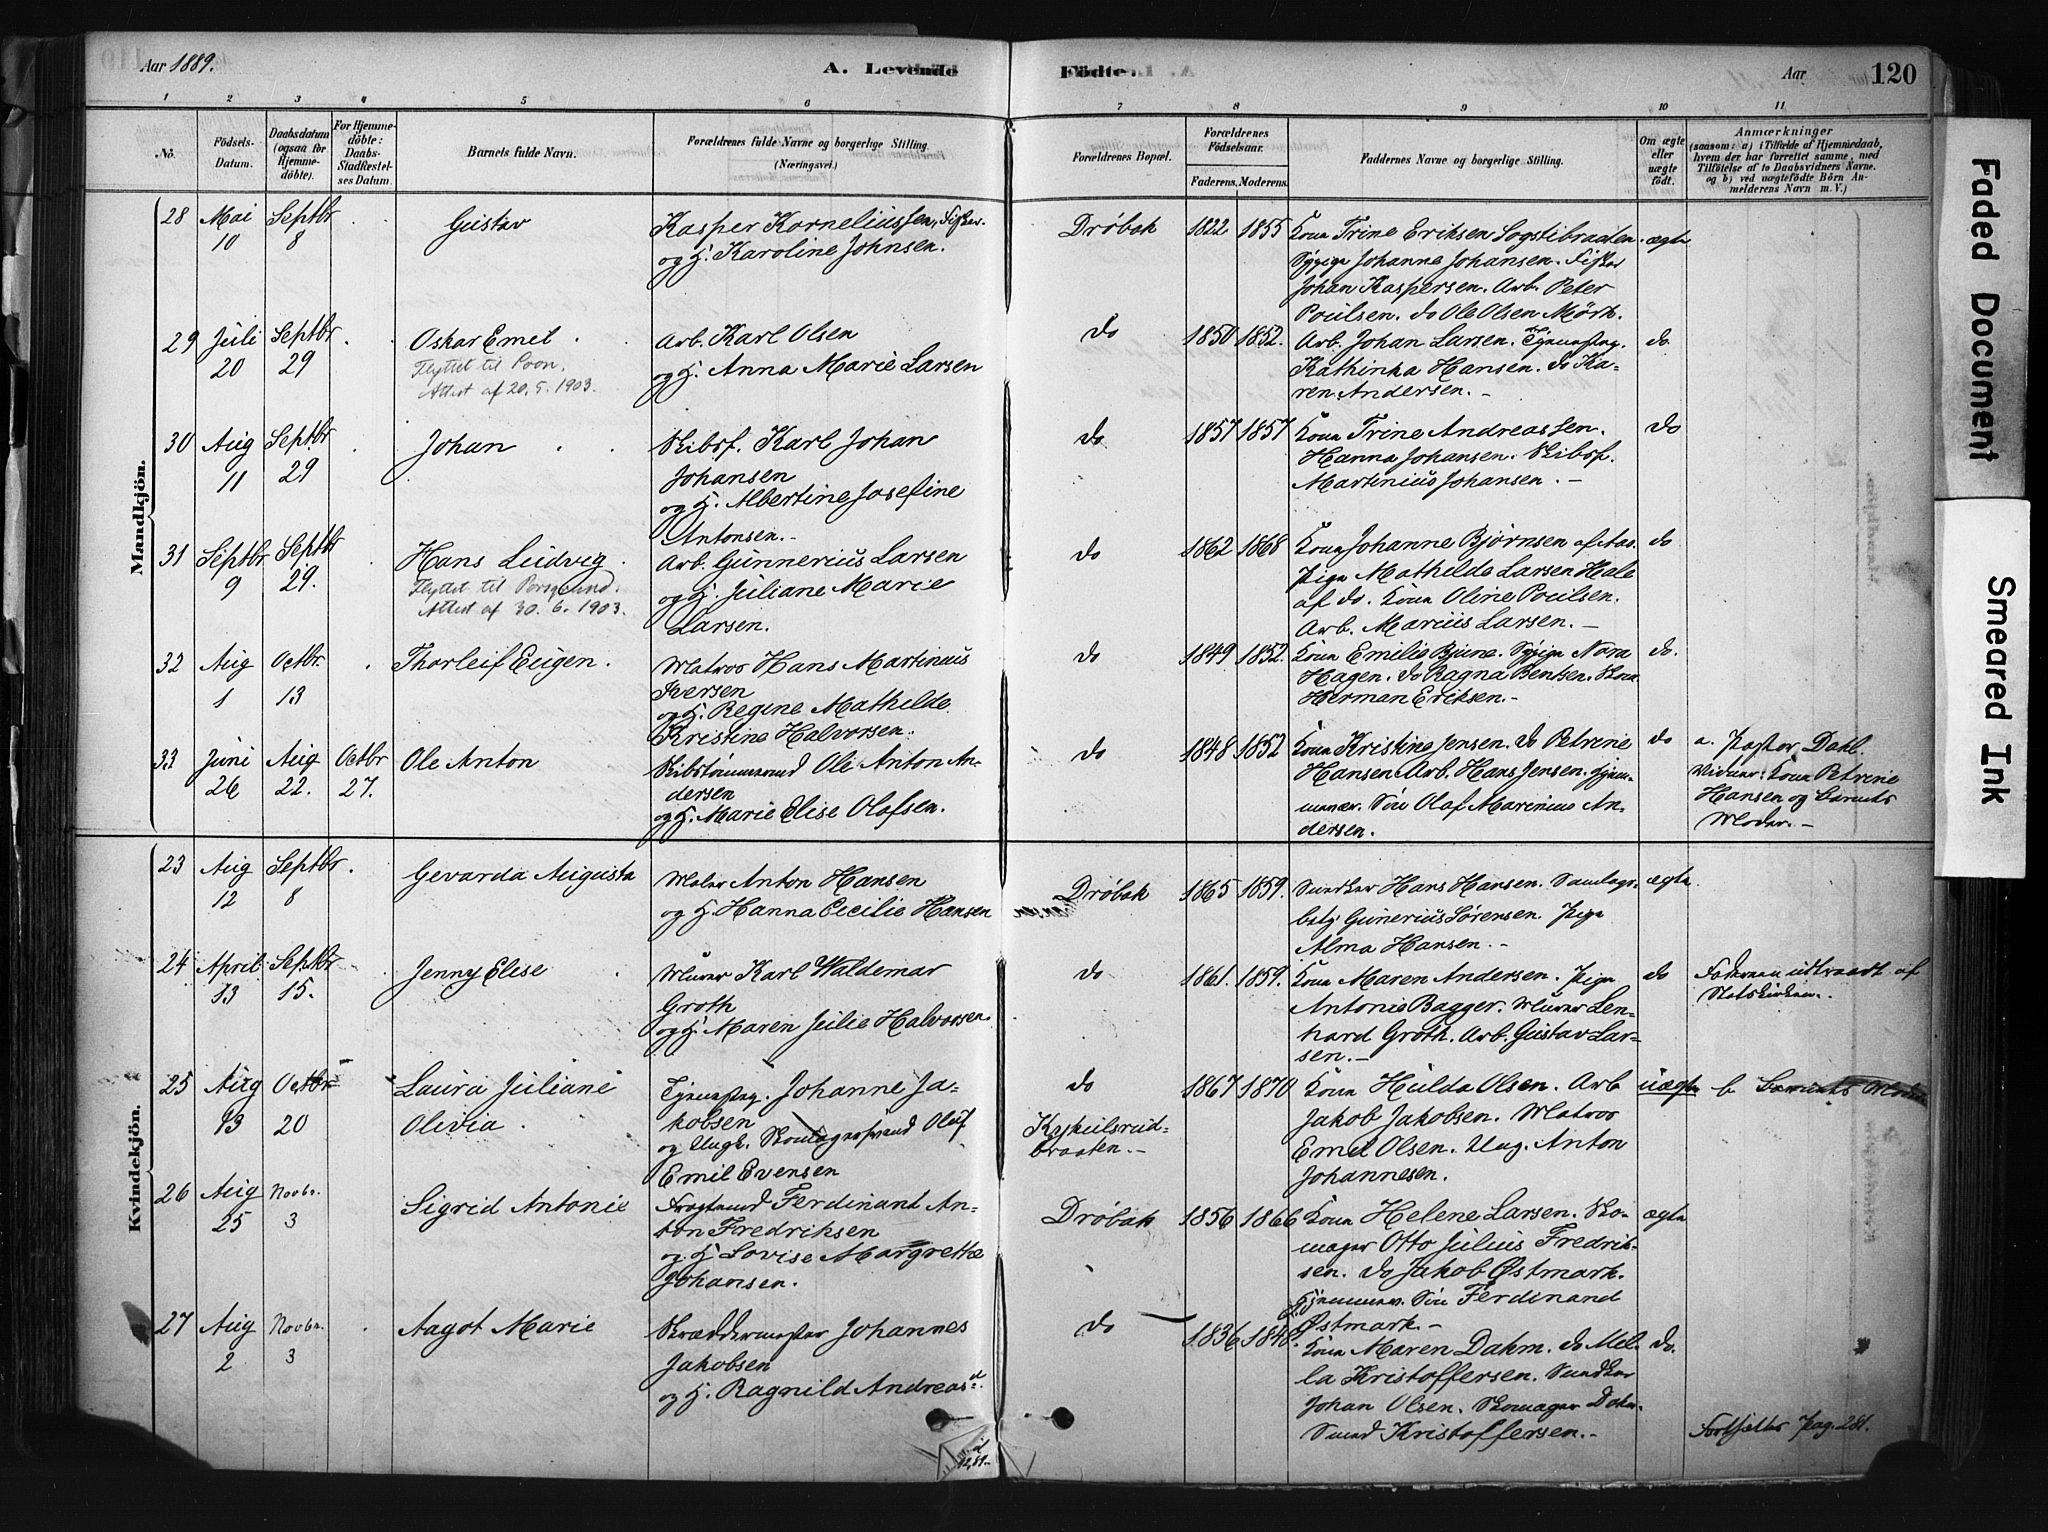 Aar 1889.
A. Levende Födte.
Aar
120
1 2 3 4 5 6 7 8 9 10 11
No.
Födsels-
Datum.
Daabsdatum
(ogsaa for
Hjemme-
döbte).
For Hjemme-
döbte:
Daabs-
Stadfæstel-
ses Datum.
Barnets fulde Navn.
Forældrenes fulde Navne og borgerlige Stilling.
(Næringsvei.)
Forældrenes Bopæl.
Forældrenes
Födselsaar.
Faderens. Moderens.
Faddernes Navne og borgerlige Stilling.
Om ægte
eller
uægte
födt.
Anmærkninger
(saasom: a) i Tilfælde af Hjemmedaab,
hvem der har forrettet samme, med
Tilföielse af to Daabsvidners Navne.
og b) ved uægtefödte Börn An-
melderens Navn m. V.)
Mandkjön.
28 Mai 10 Septbr 8 Gustav
Kasper Korneliussen, Fisker.
og H. Karoline Johnsen.
Drøbak 1822 1855
Kone Trine Eriksen Sogstibraaten.
Johanne Johansen. Fisker
Johan Kaspersen. Arb. Peter
Poulsen. do Ole Olsen Mörk.
ægte
29 Juli 20 Septbr 29 Oskar Emil
Flyttet til Poon.
Attest af 20. 5. 1903.
Arb. Karl Olsen
og H. Anna Marie Larsen
do 1850 1852.
Arb. Johan Larsen. Tjenestpg.
Kathinka Hansen. do Ka-
ren Andersen.
do
30 Aug 11 Septbr 29 Johan
Skibsf. Karl Johan
Johansen
og H. Albertine Josefine
Antonsen.
do 1857 1857
Kone Trine Andreassen.
Hanna Johansen. Skibsf.
Martinius Johansen.
do
31 Septbr 9 Septbr 29. Hans Ludvig
Flyttet til Porsgrund.
Attest af 30. 6. 1903.
Arb. Gunnerius Larsen
og H. Juliane Marie
Larsen.
do 1862 1868
Kone Johanne Bjørnsen af Aas.
Pige Mathilde Larsen Hale
af do. Kone Oline Poulsen.
Arb. Marius Larsen.
do
32 Aug 1 Octbr. 13 Thorleif Eugen.
Matros Hans Martinius
Iversen
og H. Regine Mathilde
Kristine Halvorsen.
do 1849 1852.
Kone Emilie Bjune. Nora
Hagen. do Ragna Bentsen.
Herman Eriksen.
do.
33 Juni 26 Aug 22. Octbr 27. Ole Anton
Skibstømmermand Ole Anton An-
dersen
og H. Marie Elise Olafsen.
do 1848 1852
Kone Kristine Jensen. do Petrine
Hansen Arb. Hans Jensen. Hjem-
mevær. Søn Olaf Marinius An-
dersen.
do
a. Pastor Dahl.
Vidner: Kone Petrine
Hansen og Barnets
Moder.
Kvindekjön.
23 Aug 12 Septbr. 8 Gevarda Augusta
Maler Anton Hansen
og H. Hanna Cecilie Hansen
Drøbak 1865 1859.
Snedker Hans Hansen. Samlags-
betj. Gunerius Sørensen. Pige
Alma Hansen.
ægte
24 April 13 Septbr 15. Jenny Elise
Murer Karl Waldemar
Groth
og H. Maren Julie Halvorsen
do 1861. 1859.
Kone Maren Andersen. Pige
Antonie Bagger. Murer Len-
hard Groth. Arb. Gustav Lar-
sen.
do
Faderen udtraadt af
Statskirken.
25 Aug 13 Octbr 20 Laura Juliane
Olivia
Tjenestpg. Johanne Ja-
kobsen
og Ungk. Skomagersvend Olaf
Emil Evensen
do
Kykulsrud-
braaten.
1867 1870
Kone Hulda Olsen. Arb
Jakob Jakobsen. Matros
Emil Olsen. Ung. Anton
Johannesen.
uægte
b Barnets Moder
26 Aug 25 Novbr. 3 Sigrid Antonie
Fragtmd Ferdinant An-
ton Fredriksen
og H. Lovise Margrethe
Johansen.
Drøbak 1856 1866
Kone Helene Larsen. Sko-
mager Otto Julius Fredrik-
sen. do Jakob Østmark.
Hjemmev. Søn Ferdinand
Østmark.
ægte
27 Aug 2 Novbr. 3 Aagot Marie
Skræddermester Johannes
Jakobsen
og H. Ragnild Andreasd.
do 1836 1848.
Kone Maren Dahm. do Mel-
la Kristoffersen. Snedker
Johan Olsen. Skomager
Svend Kristoffersen.
do.
Fortsættes Pag. 281.
Faded Document
Smeared Ink